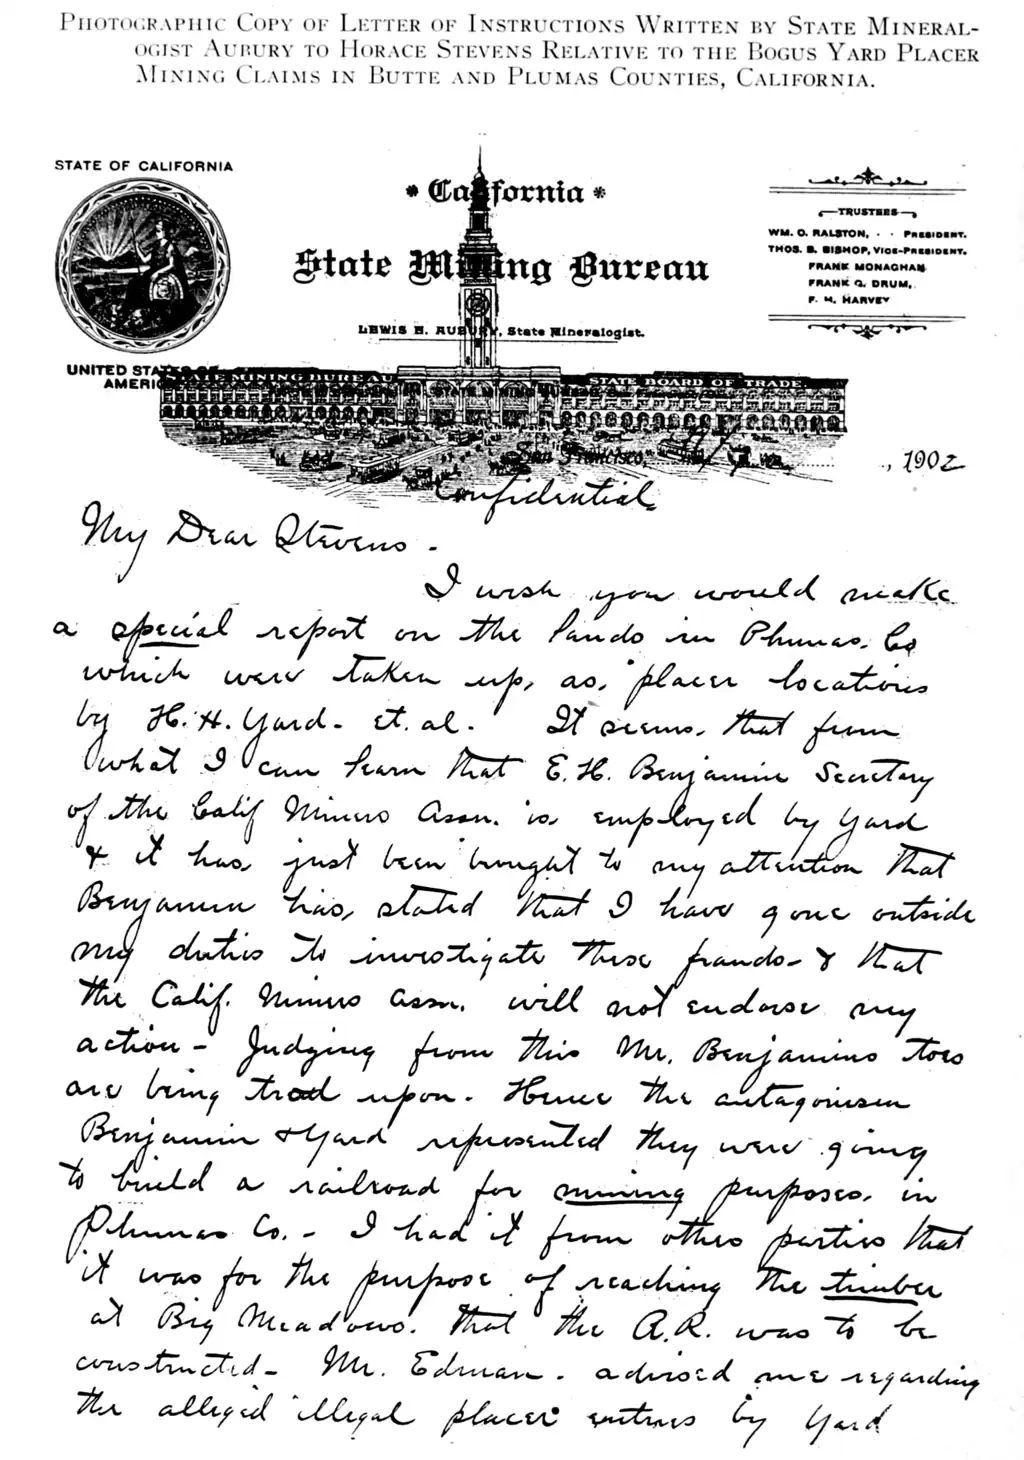 PHOTOGRAPHIC COPY OF LETTER OF INSTRUCTIONS WRITTEN BY STATE MINERAL-
OGIST AUBURY TO HORACE STEVENS RELATIVE TO THE BOGUS YARD PLACER
MINING CLAIMS IN BUTTE AND PLUMAS COUNTIES, CALIFORNIA.
STATE OF CALIFORNIA
UNITED STATES OF
AMERICA
* California *
State Mining Bureau
LEWIS E. AUBURY, State Mineralogist.
TRUSTEES
WM. O. RALSTON, - - PRESIDENT.
THOS. B. BISHOP, VICE-PRESIDENT.
FRANK MONAGHAN
FRANK G. DRUM,
F. M. HARVEY
STATE MINING BUREAU
STATE BOARD OF TRADE
San Francisco, , 1902
Confidential
My Dear Stevens -
I wish you would make
a special report on the lands in Plumas Co
which were taken up, as, "placer locations
by H. H. Yard - et. al. It seems, that from
what I can learn that E. H. Benjamin Secretary
of the Calif Miners Assn. is, employed by Yard
& it has, just been brought to my attention that
Benjamin has, stated that I have gone outside
my duties to investigate these frauds - & that
the Calif. Miners Assn. will not endorse my
action - Judging from this Mr. Benjamins toes
are being trod upon. Hence the antagonism
Benjamin & Yard represented they were going
to build a railroad for mining purposes, in
Plumas Co. - I had it from others parties that
it was for the purpose of reaching the timber
at Big Meadows. that the R.R. was to be
constructed - Mr. Edman - advised me regarding
the alleged illegal placer entries by Yard